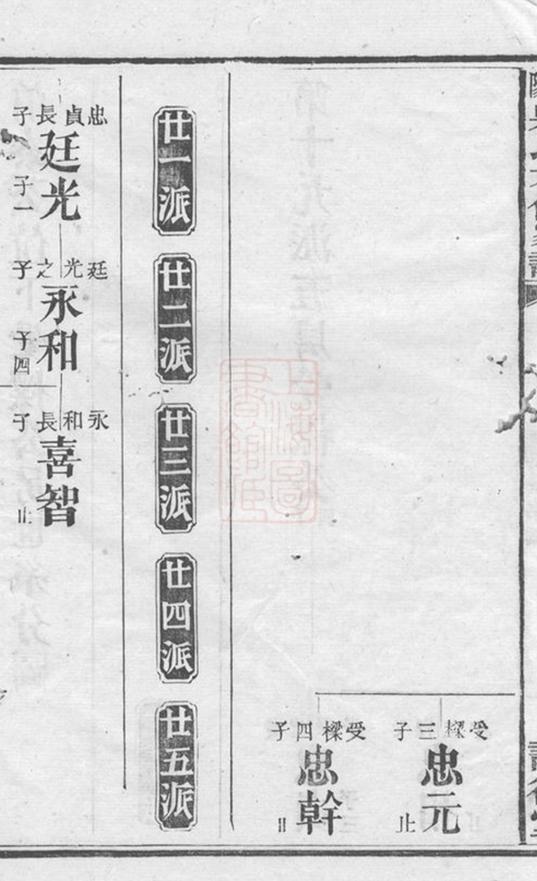 受樑三子
忠元
止
受樑四子
忠幹
廿一派
廿二派
廿三派
廿四派
廿五派
忠貞長子
廷光
子一
廷光之子
永和
子四
永和長子
喜智
止